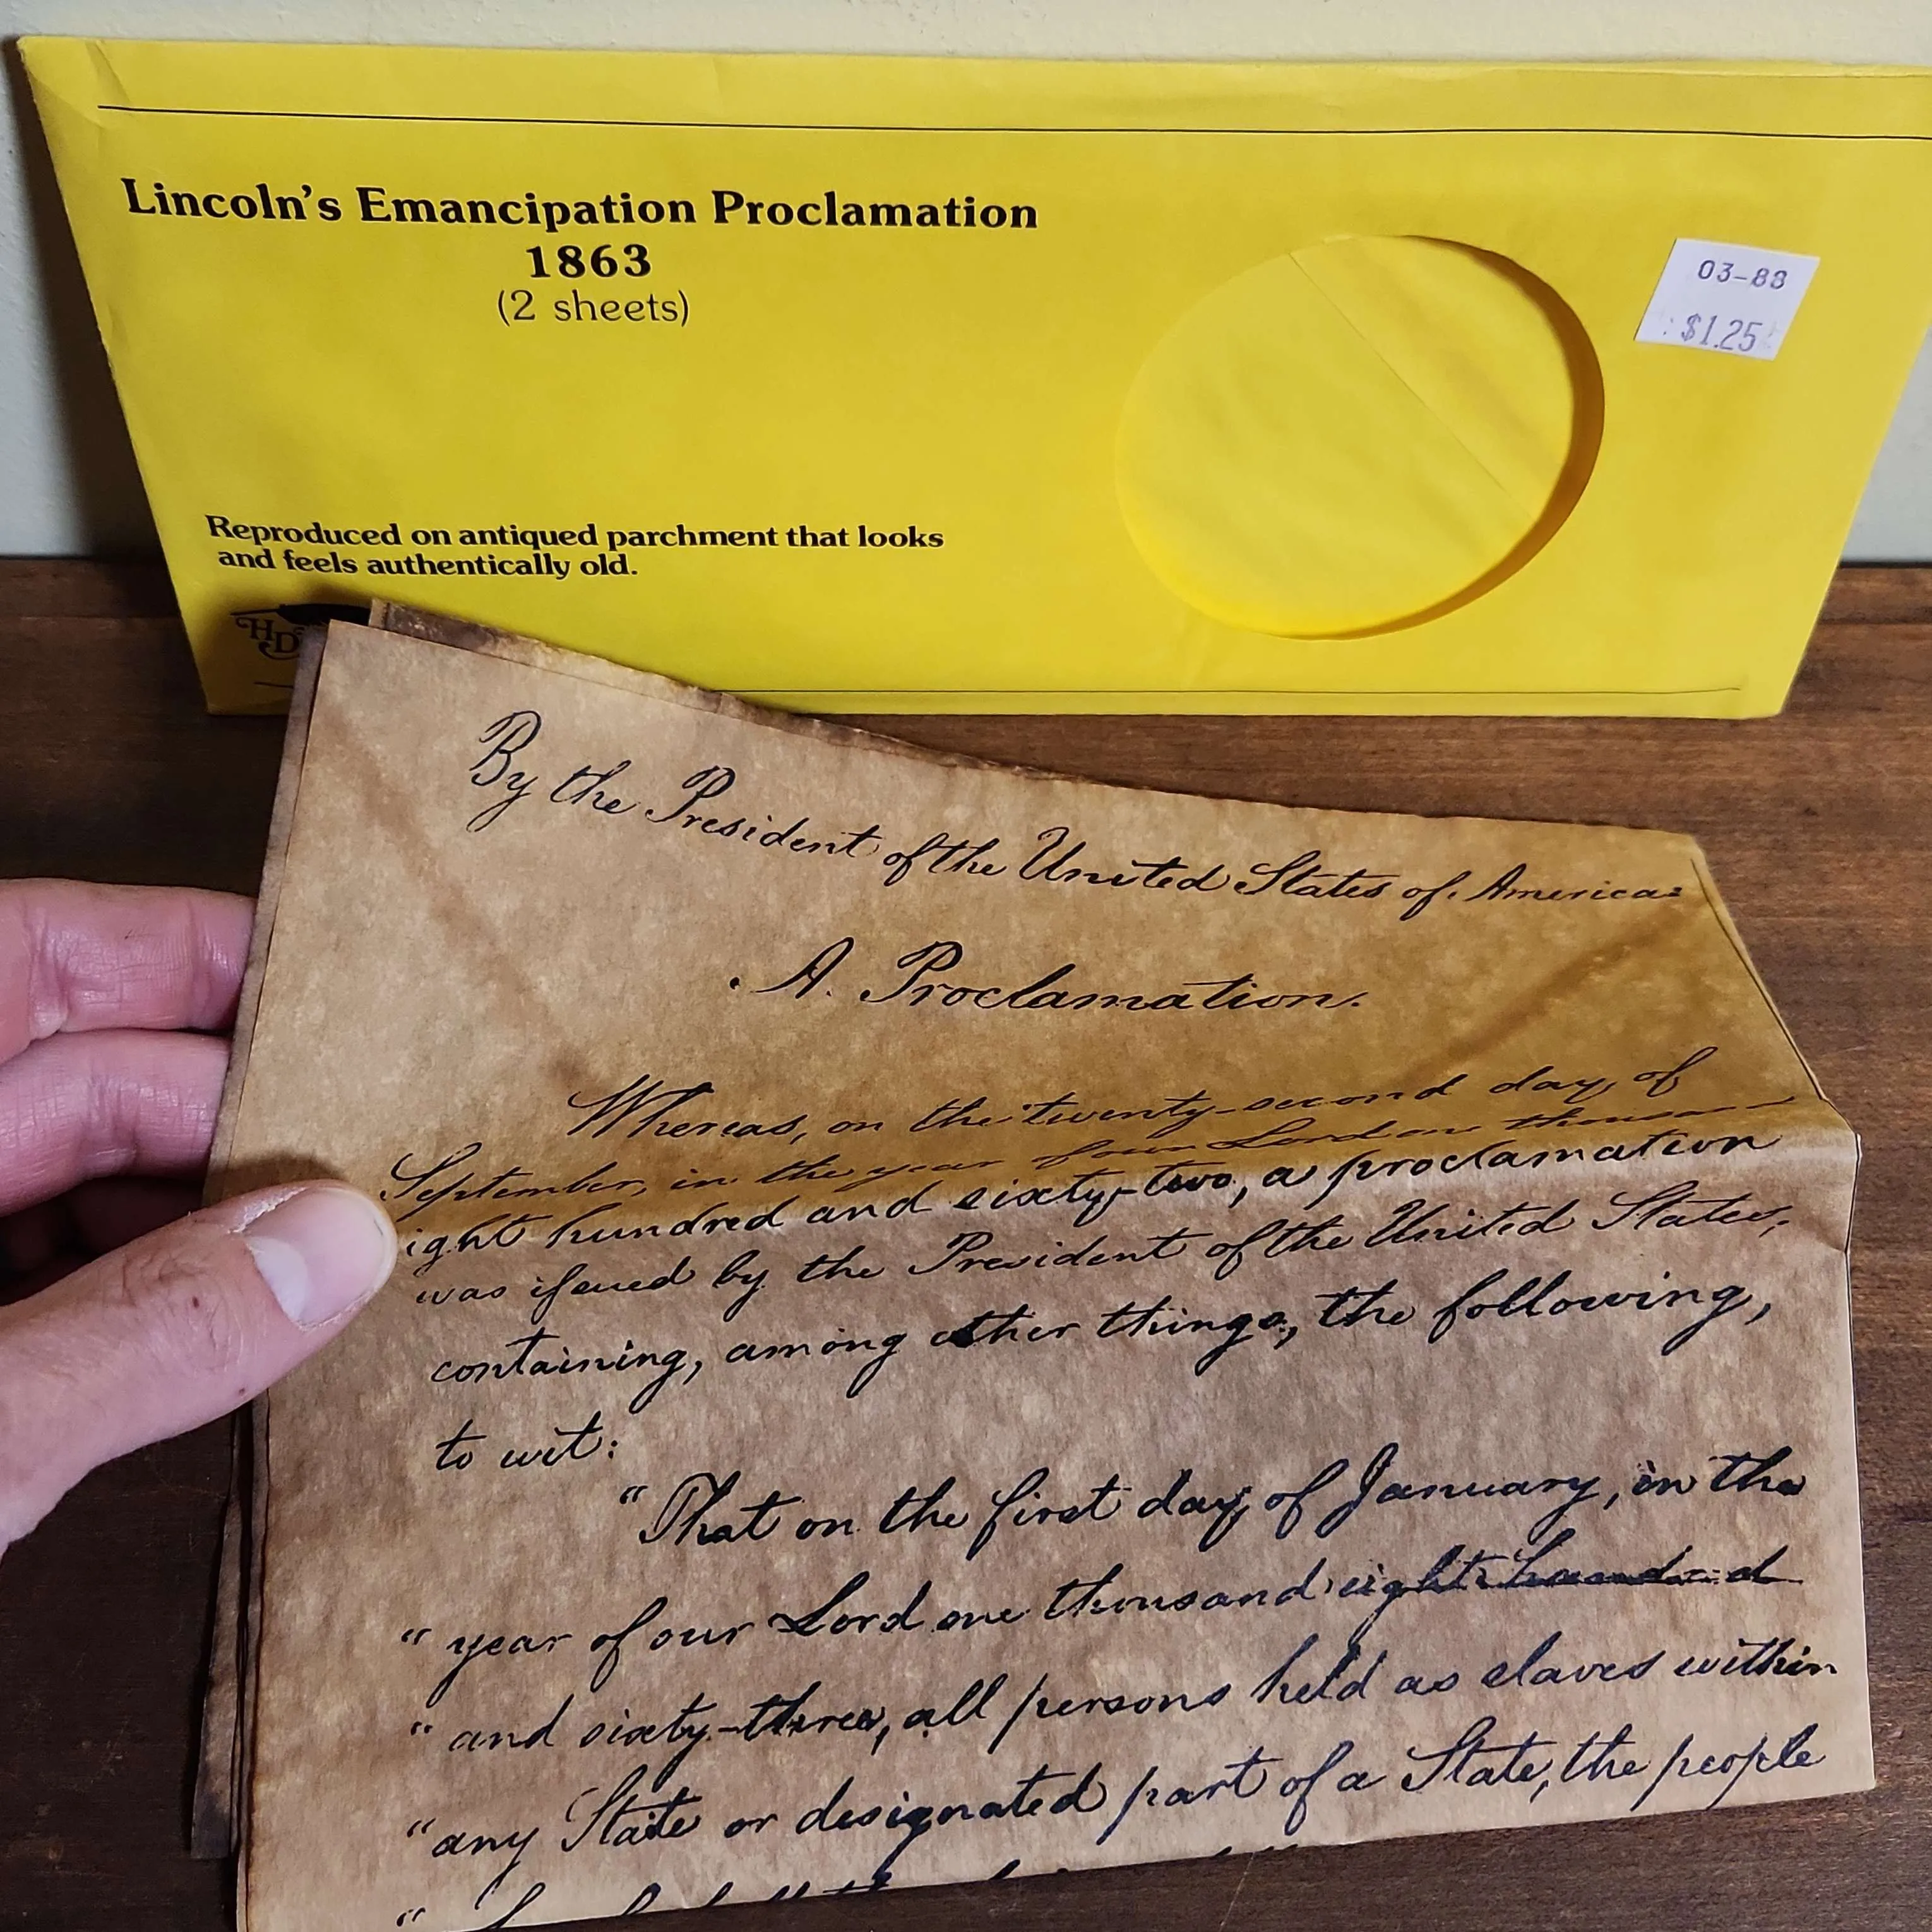 Lincoln's Emancipation Proclamation
1863
(2 sheets)
03-88
$1.25
Reproduced on antiqued parchment that looks
and feels authentically old.
HD
By the President of the United States of America:
A. Proclamation.
Whereas, on the twenty-second day of
September, in the year of our Lord one thousand
eight hundred and sixty-two, a proclamation
was issued by the President of the United States,
containing, among other things, the following,
to wit:
"That on the first day of January, in the
"year of our Lord one thousand eight hundred
"and sixty-three, all persons held as slaves within
"any State or designated part of a State, the people